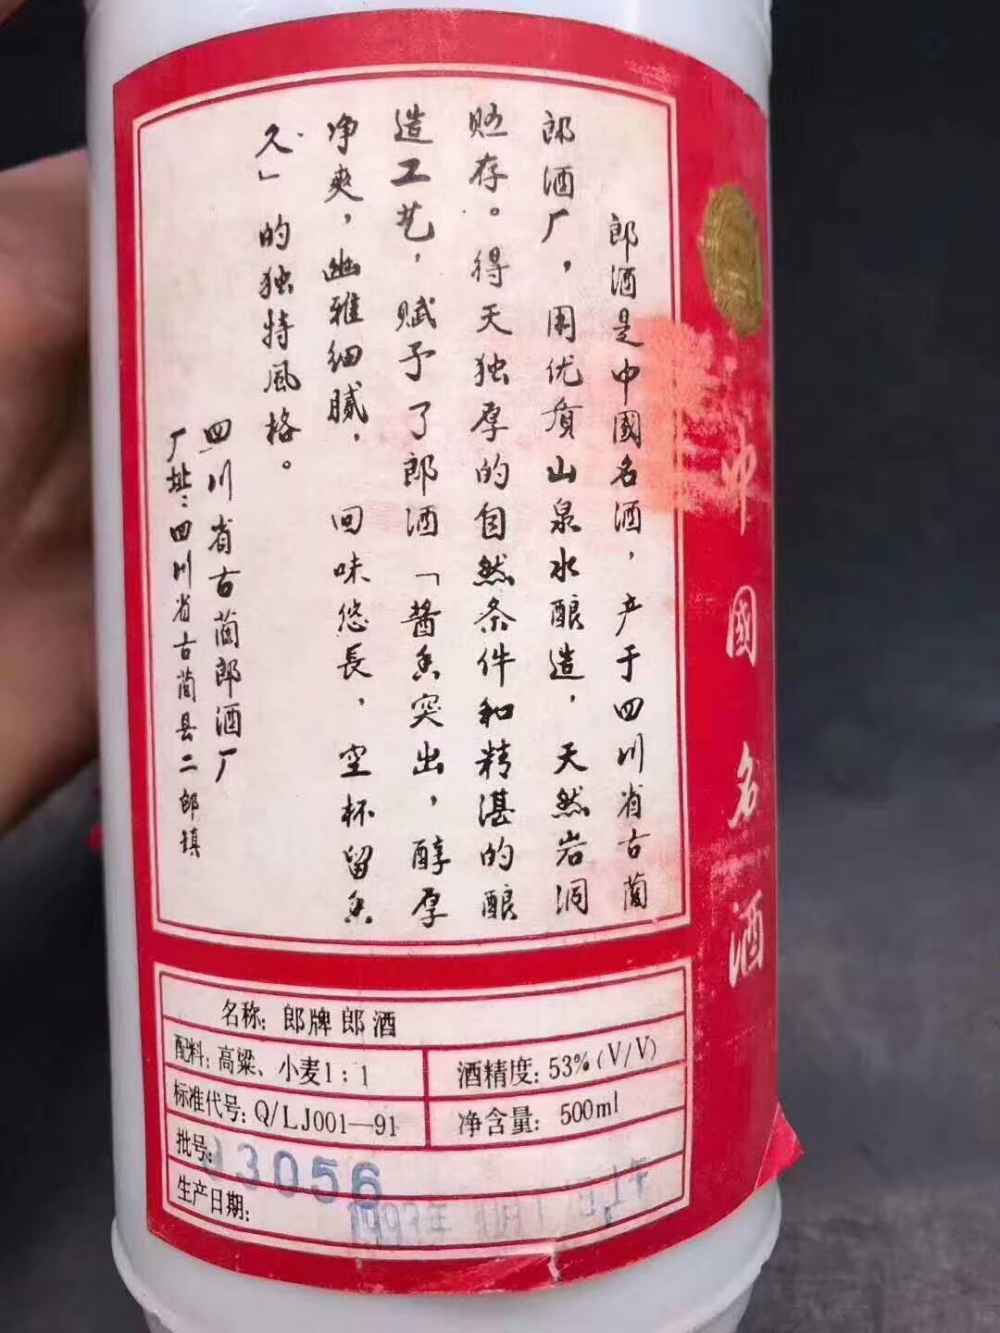 郎酒是中國名酒，产于四川省古蔺
郎酒厂，用优质山泉水酿造，天然岩洞
贮存。得天独厚的自然条件和精湛的酿
造工艺，赋予了郎酒「酱香突出，醇厚
净爽，幽雅细腻，回味悠長，空杯留香
久」的独特風格。
四川省古蔺郎酒厂
厂址：四川省古蔺县二郎镇
中國名酒
名称：郎牌郎酒
配料：高粱、小麦1：1
酒精度：53%(V/V)
标准代号：Q/LJ001—91
净含量：500ml
批号：
3056
生产日期：
1993年